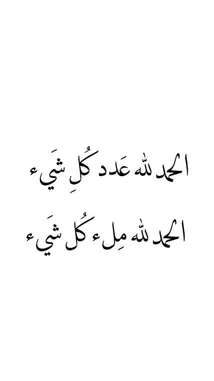 الحمد لله عَدد كُلِ شَيء
الحمد لله مِلء كُل شَيء